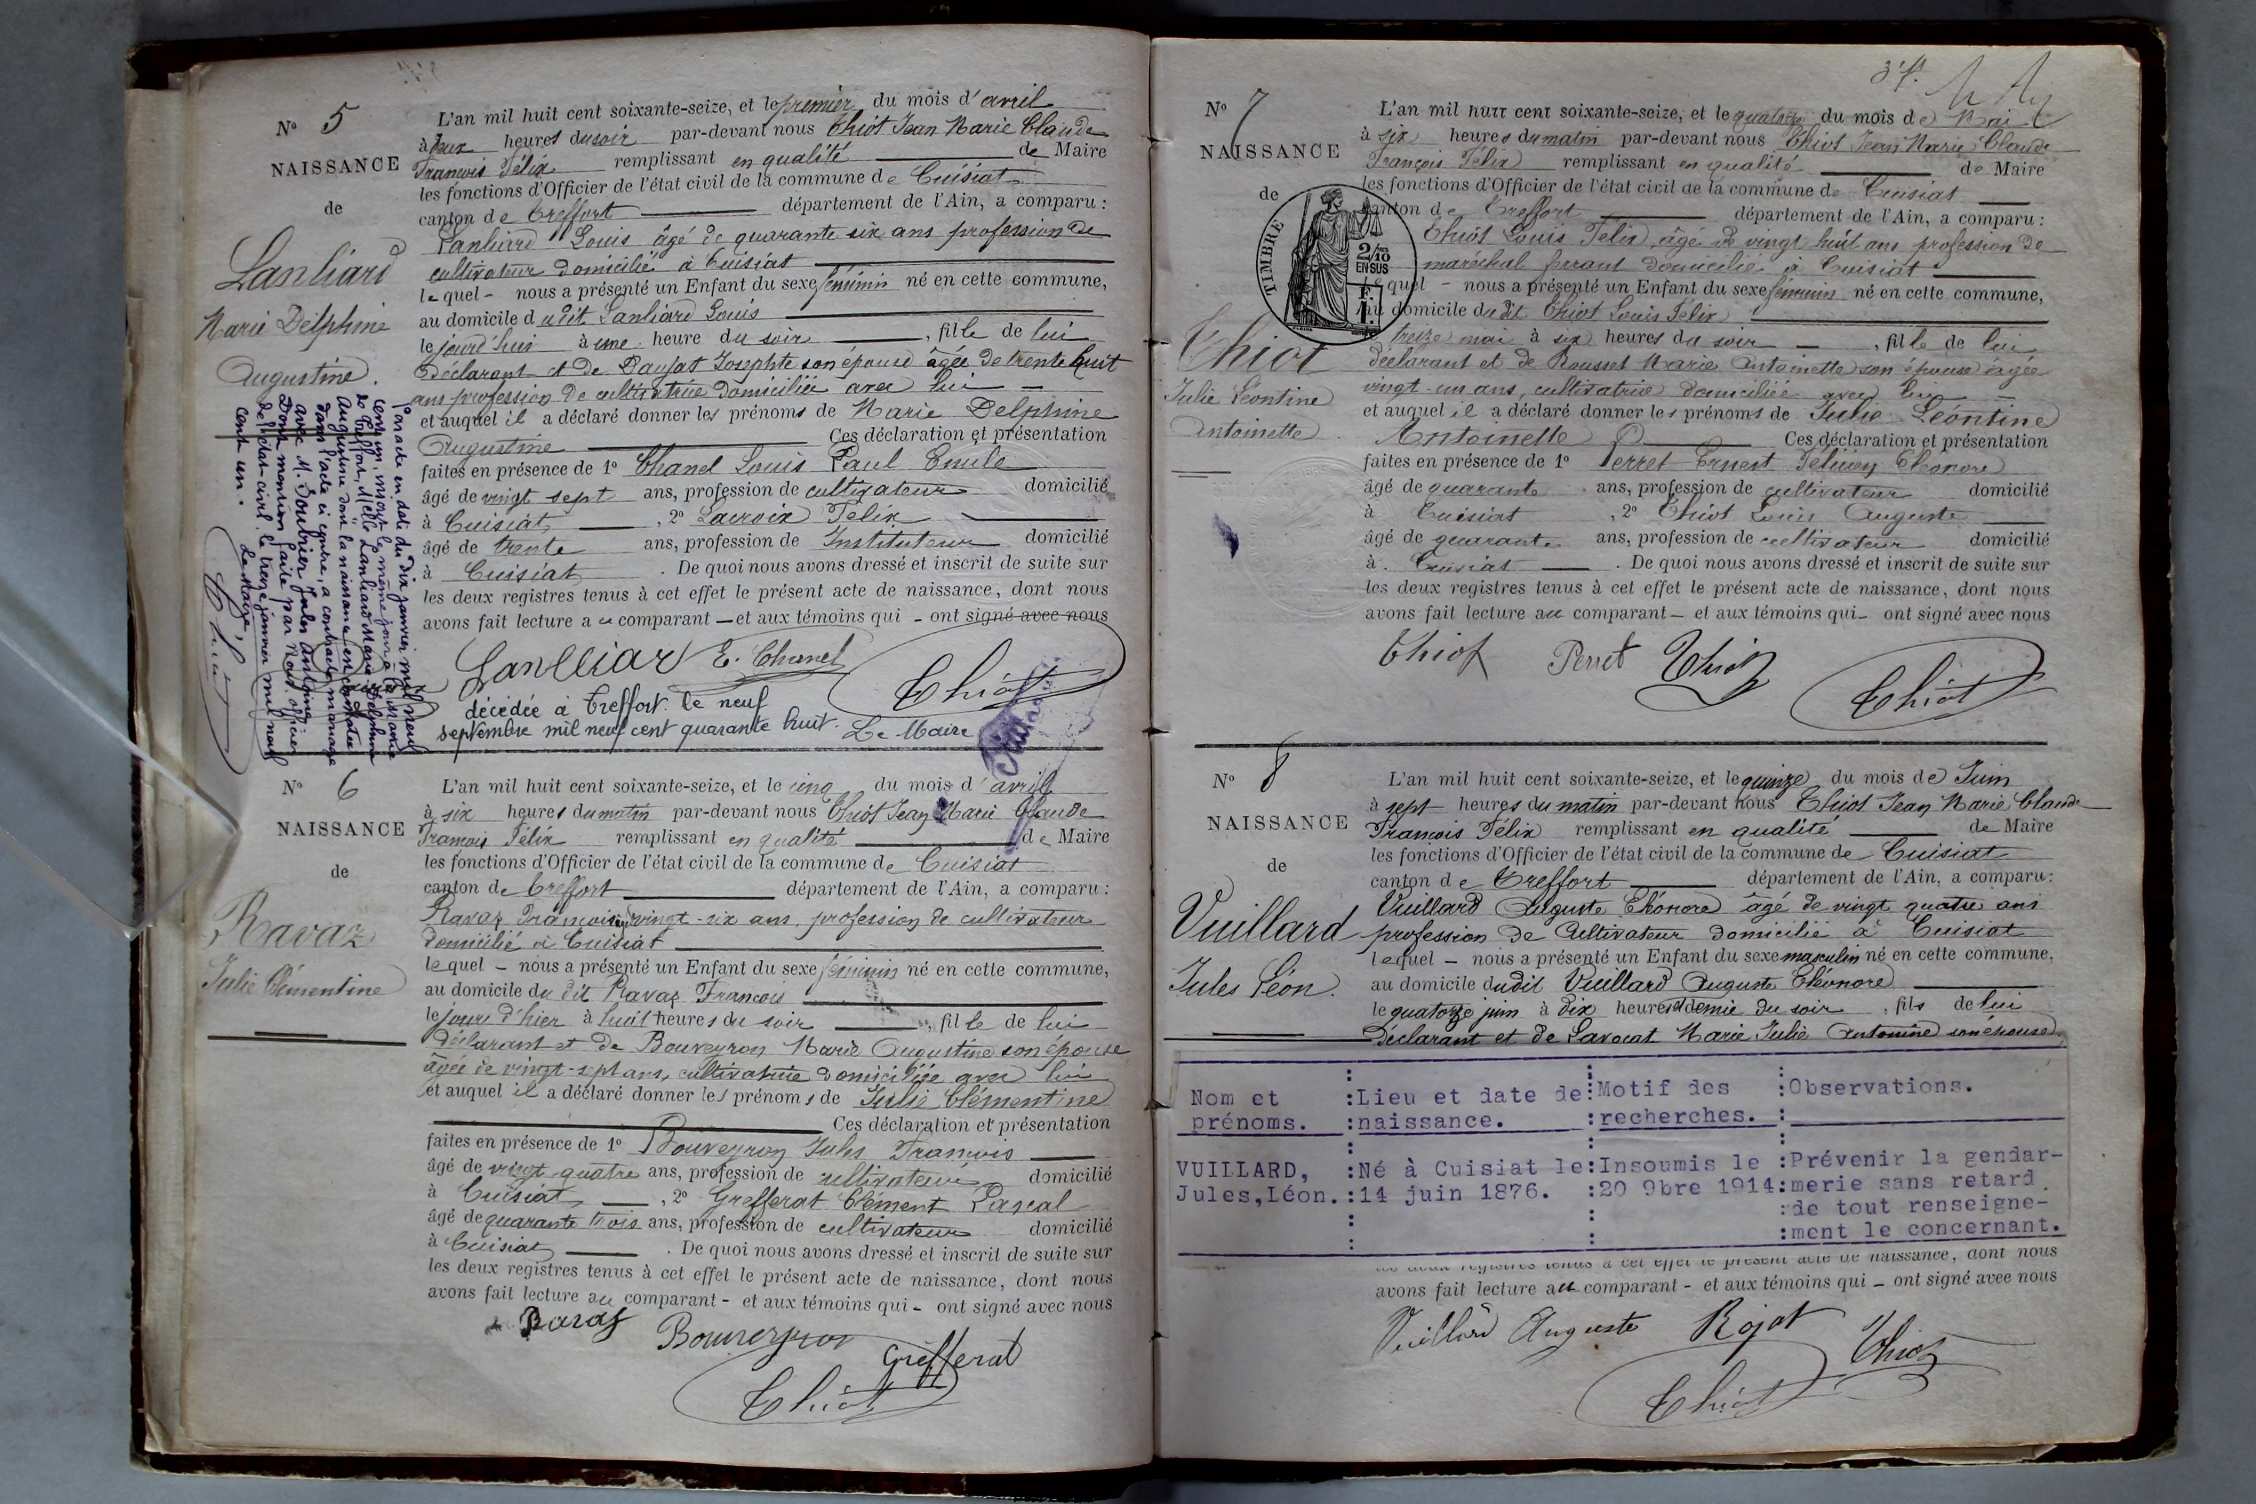 N° 5
NAISSANCE
de
Lanliard
Marie Delphine
Augustine.
L'an mil huit cent soixante-seize, et le premier du mois d'avril
à deux heures du soir par-devant nous Chiot Jean Marie Claude
François Félix remplissant en qualité de Maire
les fonctions d'Officier de l'état civil de la commune de Cuisiat
canton de Treffort département de l'Ain, a comparu :
Lanliard Louis âgé de quarante six ans profession de
cultivateur domicilié à Cuisiat
lequel - nous a présenté un Enfant du sexe féminin né en cette commune,
au domicile dudit Lanliard Louis
le jourd'hui à une heure du soir , fille de lui
Déclarant et de Josephte son épouse âgée de trente huit
ans profession de cultivatrice domiciliée avec lui -
et auquel il a déclaré donner les prénoms de Marie Delphine
Augustine Ces déclaration et présentation
faites en présence de 1° Chanel Louis Paul Emile
âgé de vingt sept ans, profession de cultivateur domicilié
à Cuisiat , 2° Lacroix Félix
âgé de trente ans, profession de Instituteur domicilié
à Cuisiat . De quoi nous avons dressé et inscrit de suite sur
les deux registres tenus à cet effet le présent acte de naissance, dont nous
avons fait lecture au comparant - et aux témoins qui - ont signé avec nous
Lanlliar E. Chanel Chiot
décédée à Treffort le neuf
septembre mil neuf cent quarante huit. Le Maire
Par acte en date du dix janvier mil neuf
cent un, inscrit le même jour à la mairie
de Treffort, Melle Lanliard Marie Delphine
Augustine dont la naissance est constatée
dans l'acte ci contre, a contracté mariage
avec M. Doubrier Jules Antoine.
Dont mention faite par Nous. officier
de l'état-civil le treize janvier mil neuf
cent un.
Le Maire,
Chiot
N° 6
NAISSANCE
de
Ravaz
Julie Clémentine
L'an mil huit cent soixante-seize, et le cinq du mois d'avril
à six heures du matin par-devant nous Chiot Jean Marie Claude
François Félix remplissant en qualité de Maire
les fonctions d'Officier de l'état civil de la commune de Cuisiat
canton de Treffort département de l'Ain, a comparu :
Ravaz François vingt-six ans, profession de cultivateur
domicilié à Cuisiat
lequel - nous a présenté un Enfant du sexe féminin né en cette commune,
au domicile du dit Ravaz François
le jour d'hier à huit heures du soir , fille de lui
déclarant et de Bouveyron Marie Augustine son épouse
âgée de vingt-sept ans, cultivatrice domiciliée avec lui
et auquel il a déclaré donner les prénoms de Julie Clémentine
Ces déclaration et présentation
faites en présence de 1° Bouveyron Jules François
âgé de vingt quatre ans, profession de cultivateur domicilié
à Cuisiat , 2° Grefferat Clément Pascal
âgé de quarante trois ans, profession de cultivateur domicilié
à Cuisiat . De quoi nous avons dressé et inscrit de suite sur
les deux registres tenus à cet effet le présent acte de naissance, dont nous
avons fait lecture au comparant - et aux témoins qui - ont signé avec nous
Ravaz Bouveyron Grefferat
Chiot
N° 7
NAISSANCE
de
TIMBRE
2/10
EN SUS
Chiot
Julie Léontine
Antoinette.
L'an mil huit cent soixante-seize, et le quatorze du mois de Mai
à six heures du matin par-devant nous Chiot Jean Marie Claude
François Félix remplissant en qualité de Maire
les fonctions d'Officier de l'état civil de la commune de Cuisiat
canton de Treffort département de l'Ain, a comparu :
Chiot Louis Félix, âgé de vingt huit ans profession de
maréchal ferrant domicilié à Cuisiat
lequel - nous a présenté un Enfant du sexe féminin né en cette commune,
au domicile dudit Chiot Louis Félix
le treize mai à six heures du soir - , fille de lui
déclarant et de Rousset Marie Antoinette son épouse âgée
vingt-un ans, cultivatrice domiciliée avec lui
et auquel il a déclaré donner les prénoms de Julie Léontine
Antoinette Ces déclaration et présentation
faites en présence de 1° Perret Ernest Eléonore
âgé de quarante ans, profession de cultivateur domicilié
à Cuisiat , 2° Chiot Louis Auguste
âgé de quarante ans, profession de cultivateur domicilié
à Cuisiat . De quoi nous avons dressé et inscrit de suite sur
les deux registres tenus à cet effet le présent acte de naissance, dont nous
avons fait lecture au comparant - et aux témoins qui - ont signé avec nous
Chiot Perret Chiot
Chiot
N° 8
NAISSANCE
de
Vuillard
Jules Léon.
L'an mil huit cent soixante-seize, et le quinze du mois de Juin
à sept heures du matin par-devant nous Chiot Jean Marie Claude
François Félix remplissant en qualité de Maire
les fonctions d'Officier de l'état civil de la commune de Cuisiat
canton de Treffort département de l'Ain, a comparu :
Vuillard Auguste Eléonore âgé de vingt quatre ans
profession de Cultivateur domicilié à Cuisiat
lequel - nous a présenté un Enfant du sexe masculin né en cette commune,
au domicile dudit Vuillard Auguste Eléonore
le quatorze juin à dix heures et demie du soir , fils de lui
Déclarant et de Lavocat Marie Julie Antonine son épouse
Nom et :Lieu et date de:Motif des :Observations.
prénoms. :naissance. :recherches. :
VUILLARD, :Né à Cuisiat le:Insoumis le :Prévenir la gendar-
Jules,Léon.:14 juin 1876. :20 9bre 1914:merie sans retard
:de tout renseigne-
:ment le concernant.
les deux registres tenus à cet effet le présent acte de naissance, dont nous
avons fait lecture au comparant - et aux témoins qui - ont signé avec nous
Vuillard Auguste Rojat Chiot
Chiot